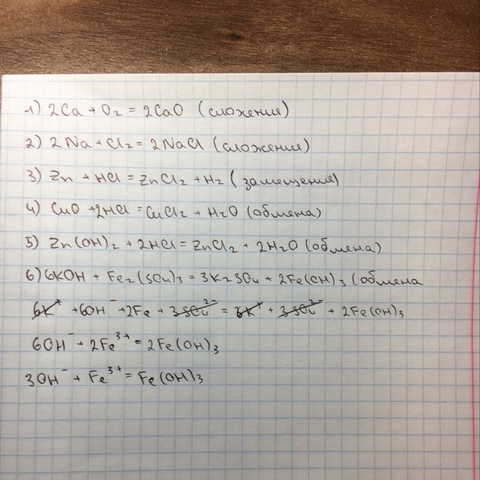 1) 2Ca + O₂ = 2CaO (сложения)
2) 2Na + Cl₂ = 2NaCl (сложения)
3) Zn + HCl = ZnCl₂ + H₂ (замещения)
4) CuO + 2HCl = CuCl₂ + H₂O (обмена)
5) Zn(OH)₂ + 2HCl = ZnCl₂ + 2H₂O (обмена)
6) 6KOH + Fe₂(SO₄)₃ = 3K₂SO₄ + 2Fe(OH)₃ (обмена
6K⁺ + 6OH⁻ + 2Fe + 3SO₄²⁻ = 6K⁺ + 3SO₄²⁻ + 2Fe(OH)₃
6OH⁻ + 2Fe³⁺ = 2Fe(OH)₃
3OH⁻ + Fe³⁺ = Fe(OH)₃